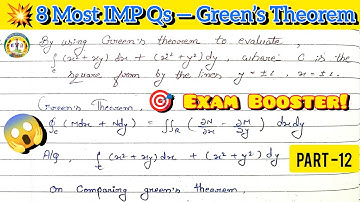 8 Most IMP Qs – Green's Theorem
By using Green's theorem to evaluate,
∫c (x²+xy) dx + (x²+y²) dy, where C is the
square from by the lines y = ±1, x = ±1.
Green's Theorem
🎯 Exam Booster!
∮c (Mdx + Ndy) = ∬R (∂N/∂x - ∂M/∂y) dxdy
A/Q, ∫c (x²+xy)dx + (x²+y²)dy
PART-12
On comparing green's theorem,